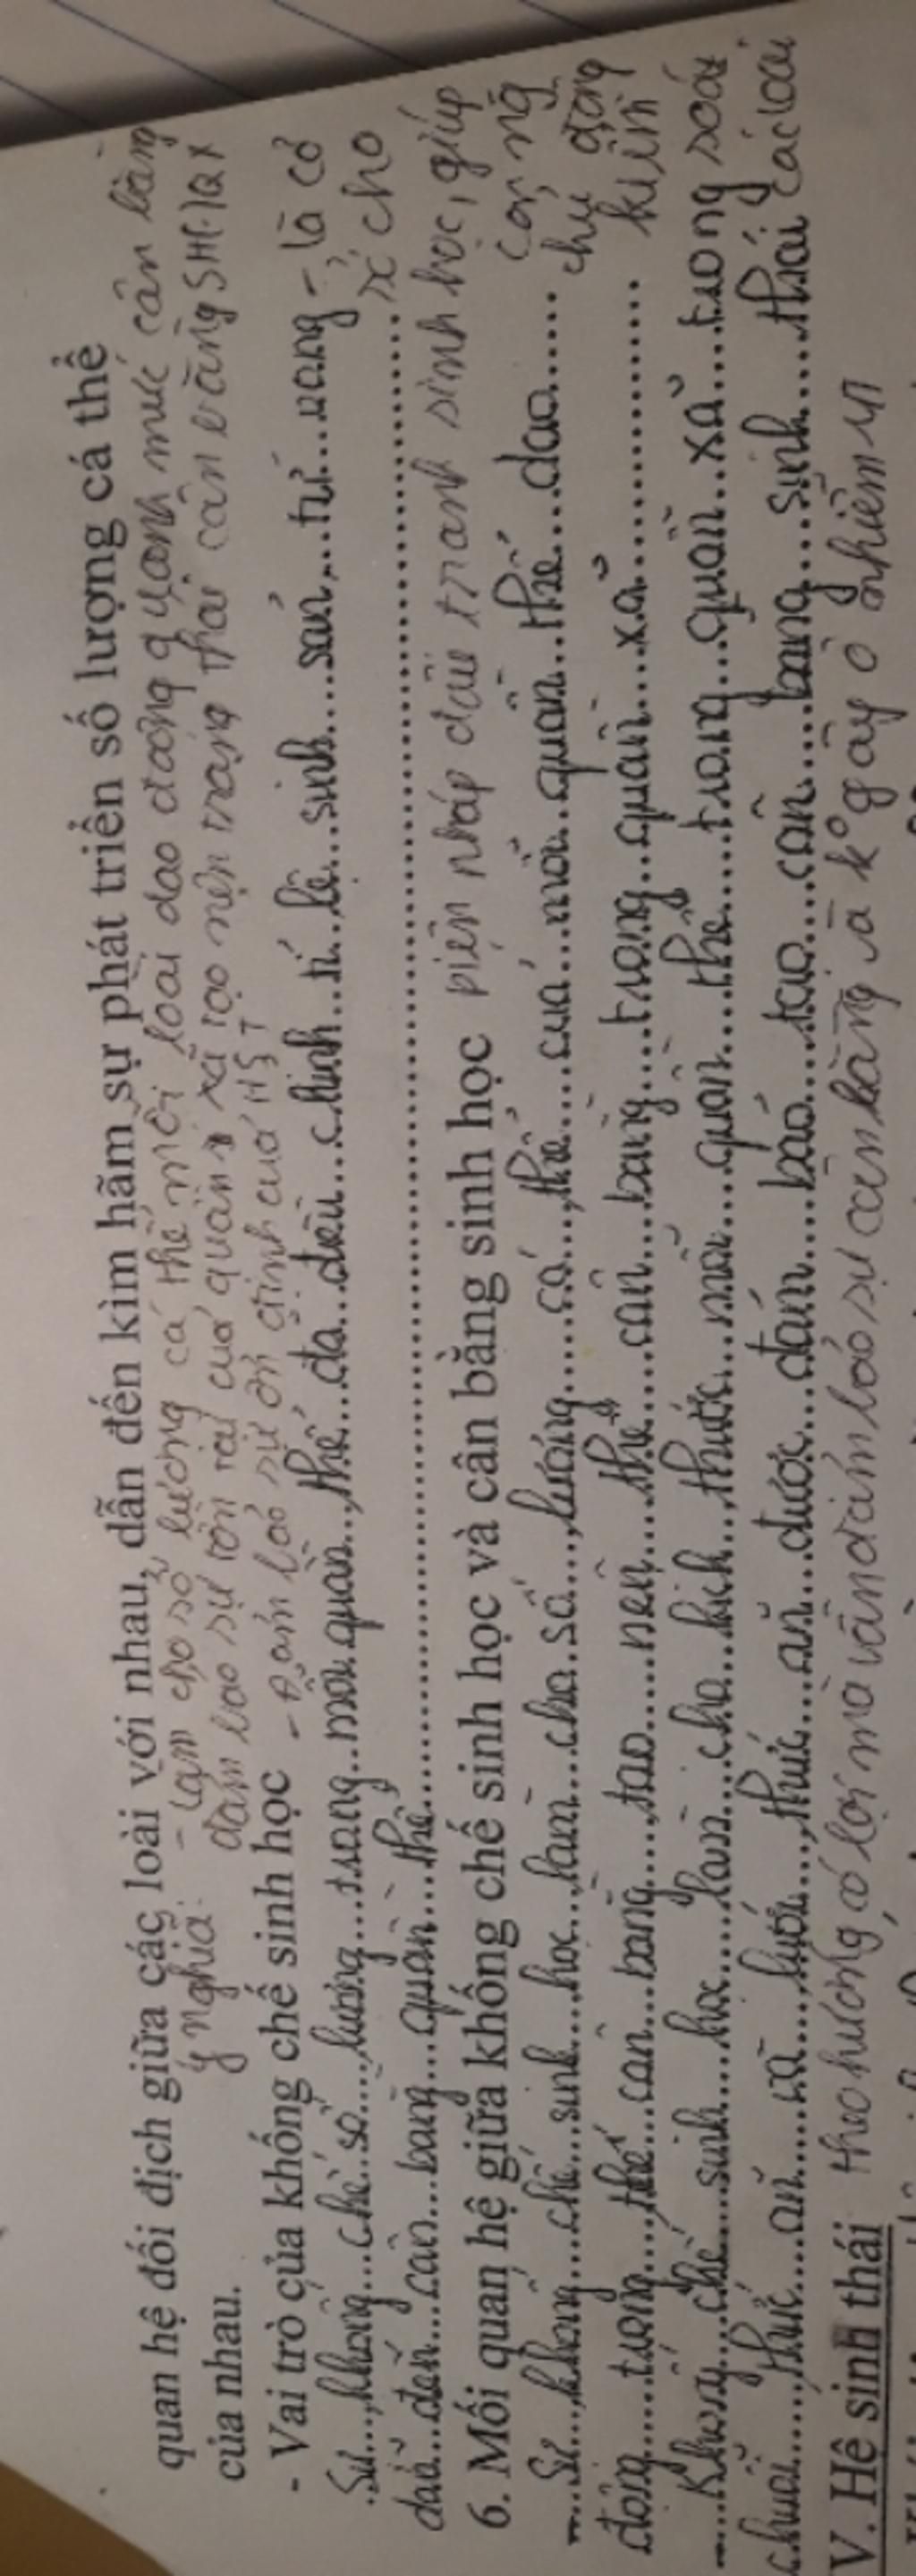 quan hệ đối dịch giữa các loài với nhau, dẫn đến kìm hãm sự phát triển số lượng cá thể
của nhau.
ý nghĩa: - làm cho số lượng cá thể mỗi loài dao động quanh mức cân bằng
đảm bảo sự tồn tại của quần xã tạo nên trạng thái cân bằng SH QX
- Đảm bảo sự ổn định của HST
- Vai trò của khống chế sinh học
Sự khống chế số lượng trong mỗi quần thể đa điều chỉnh tỉ lệ sinh sản, tử vong
dẫn đến cân bằng quần thể
- là cơ
cho
6. Mối quan hệ giữa khống chế sinh học và cân bằng sinh học
pháp đấu tranh sinh học, giúp
con ng
chủ động
kiểm
soát
các loài
- Sự khống chế sinh học làm cho số lượng cá thể của mỗi quần thể dao
động trong thế cân bằng tạo nên thế cân bằng trong quần xã
- Khống chế sinh học làm cho kích thước mỗi quần thể trong quần xã trong
chuỗi thức ăn và lưới thức ăn được đảm bảo tạo cân bằng sinh thái
theo hướng có lợi mà vẫn đảm bảo sự cân bằng và kº gây ô nhiễm
V. Hệ sinh thái